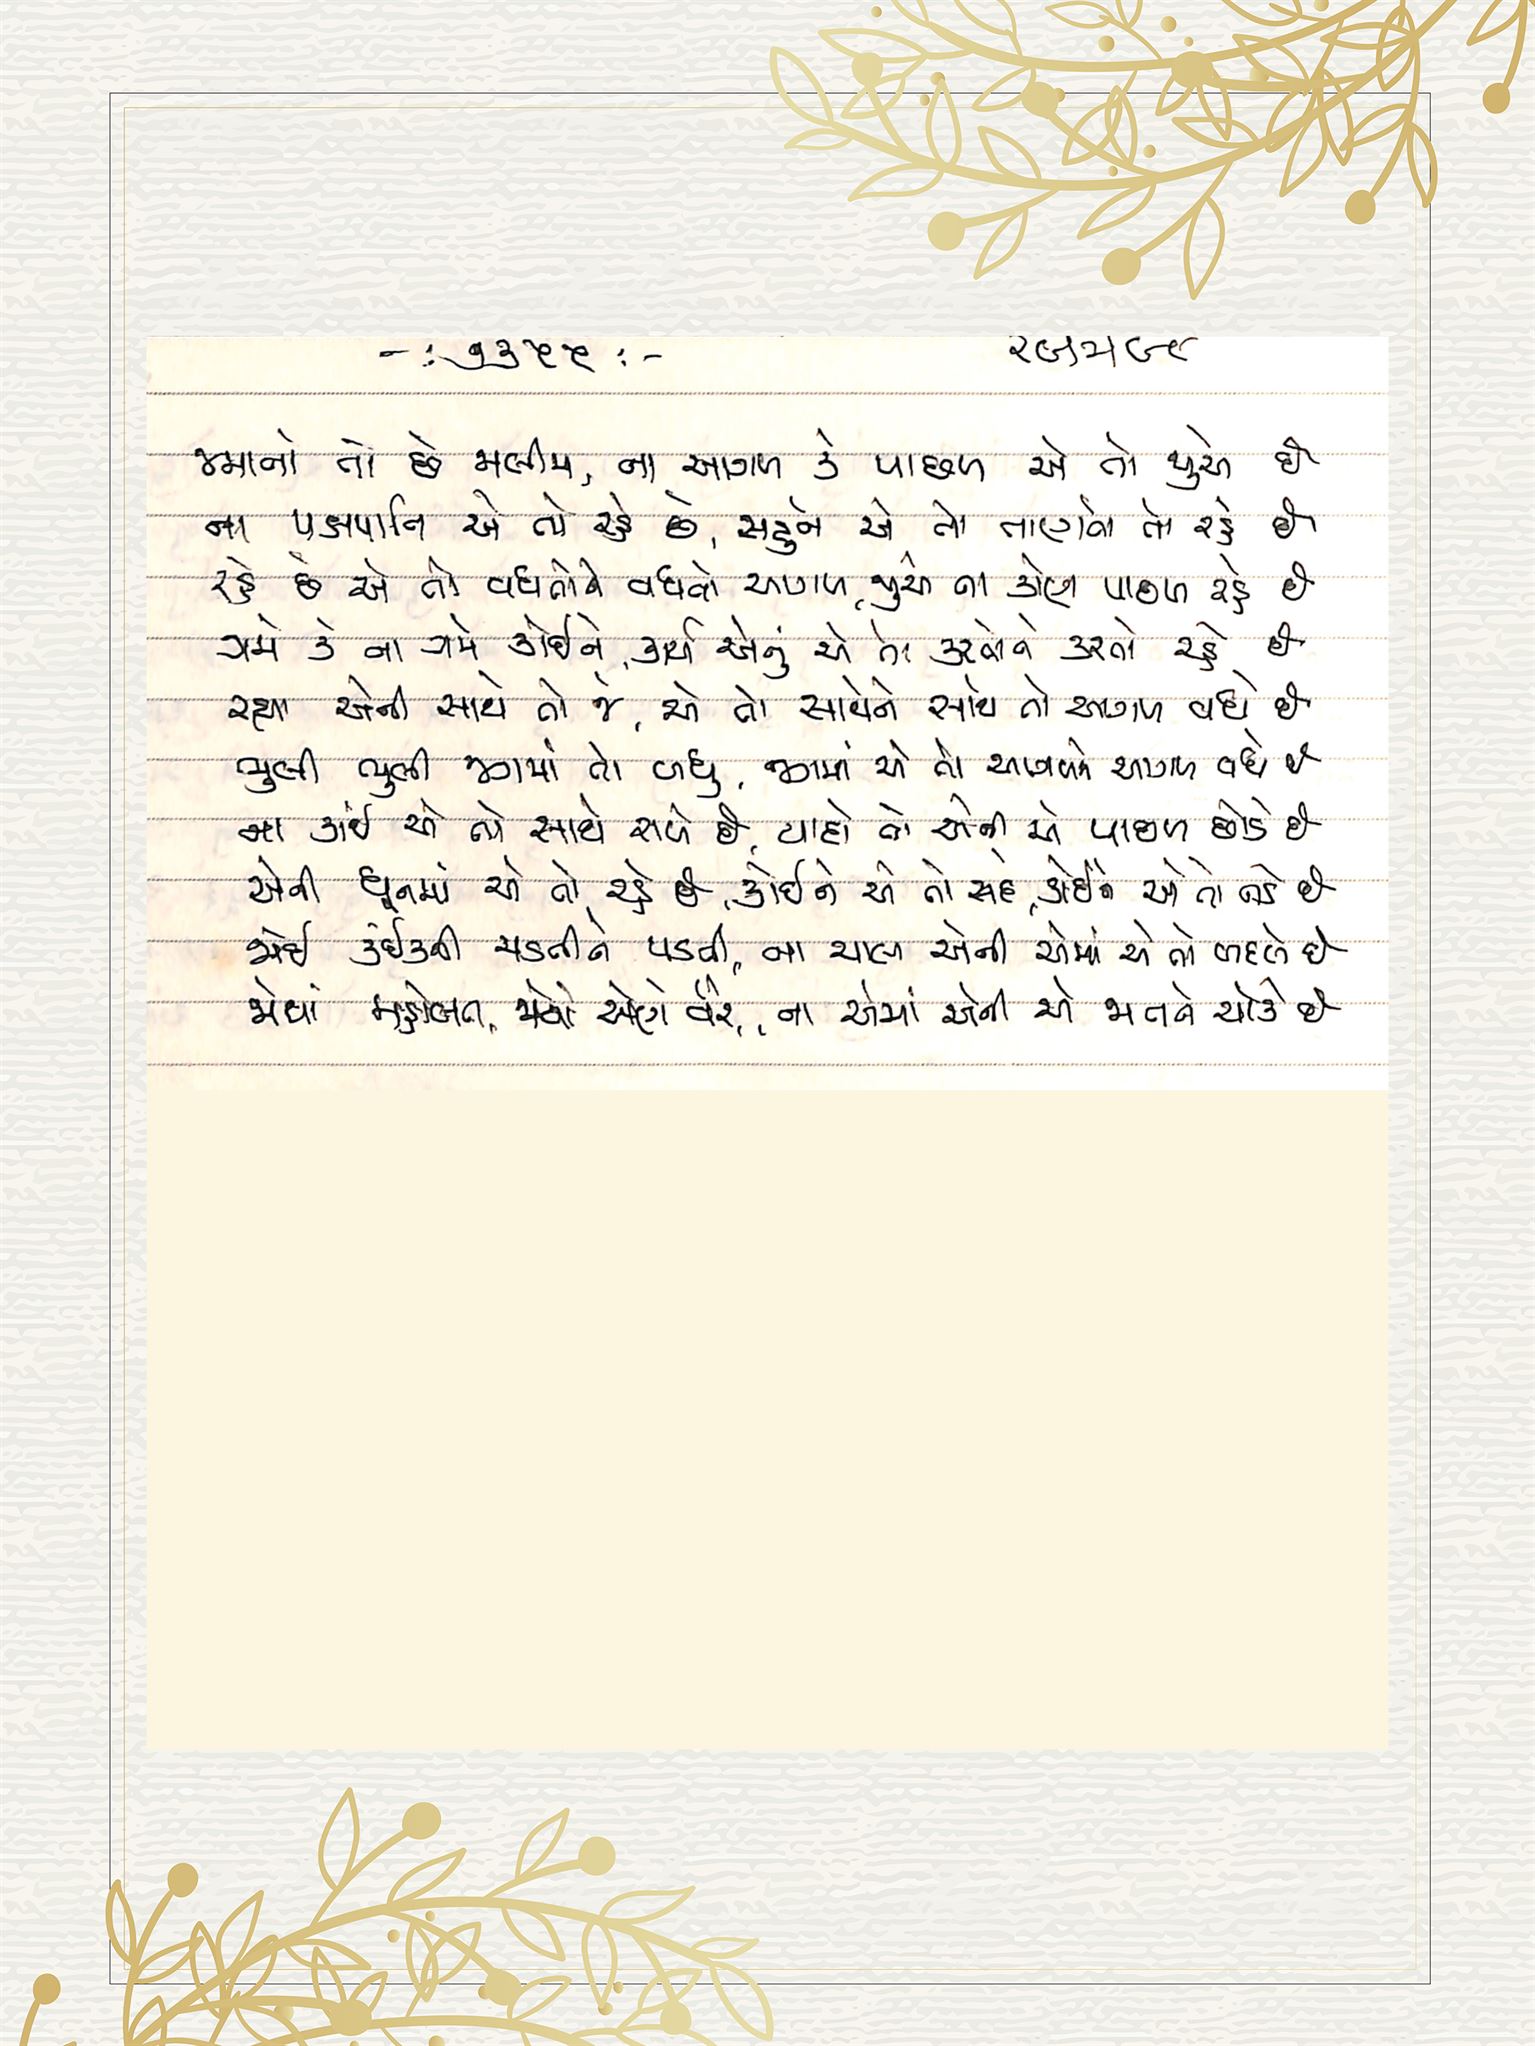 -: ૧૩૨૨ :-
જમાનો તો છે મલીય, ના આગળ કે પાછળ એ તો જુએ છે
ના પક્ષપાતિ એ તો રહે છે, સહુને એ તો તાણતો તો રહે છે
રહે છે એ તો વધતોને વધતો આગળ, જુએ ના કોણ પાછળ રહે છે
ગમે કે ના ગમે કોઈને, કાર્ય એનું એ તો કરતોને કરતો રહે છે
રહ્યા એની સાથે તો જે, એ તો સાથેને સાથે તો આગળ વધે છે
ભુલી ભુલી જગમાં તો બધુ, જગમાં એ તો આગળને આગળ વધે છે
ના કાંઈ એ તો સાથે રાખે છે, યાદો તો એની એ પાછળ છોડે છે
એની ધૂનમાં એ તો રહે છે, કોઈને એ તો સહે, કોઈને એ તો નડે છે
જોઈ કંઈકની ચડતીને પડતી, ના ચાલ એની એમાં એ તો બદલે છે
જોયાં મહોબત, જોયો એણે વેર, ના એમાં એની એ જાતને રોકે છે